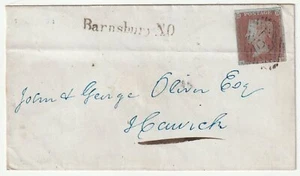 Barnsbury NO
John & George Oliver Esq
Hawick